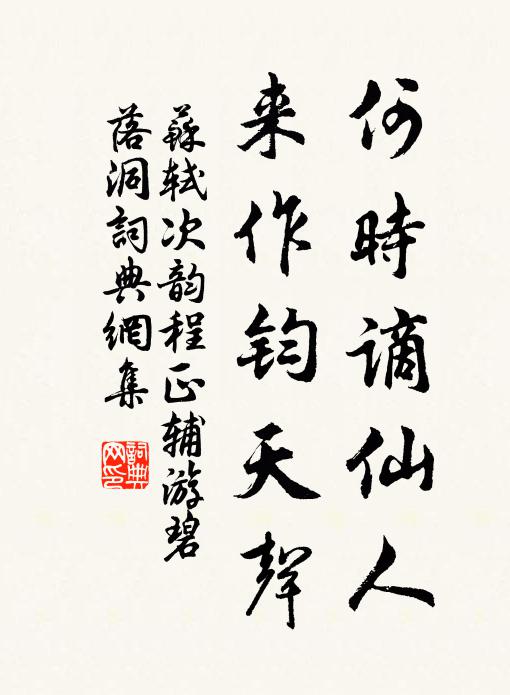 何時謫仙人
来作鈞天聲
蘇軾次韵程正輔游碧
落洞詞典網集
詞典
网印